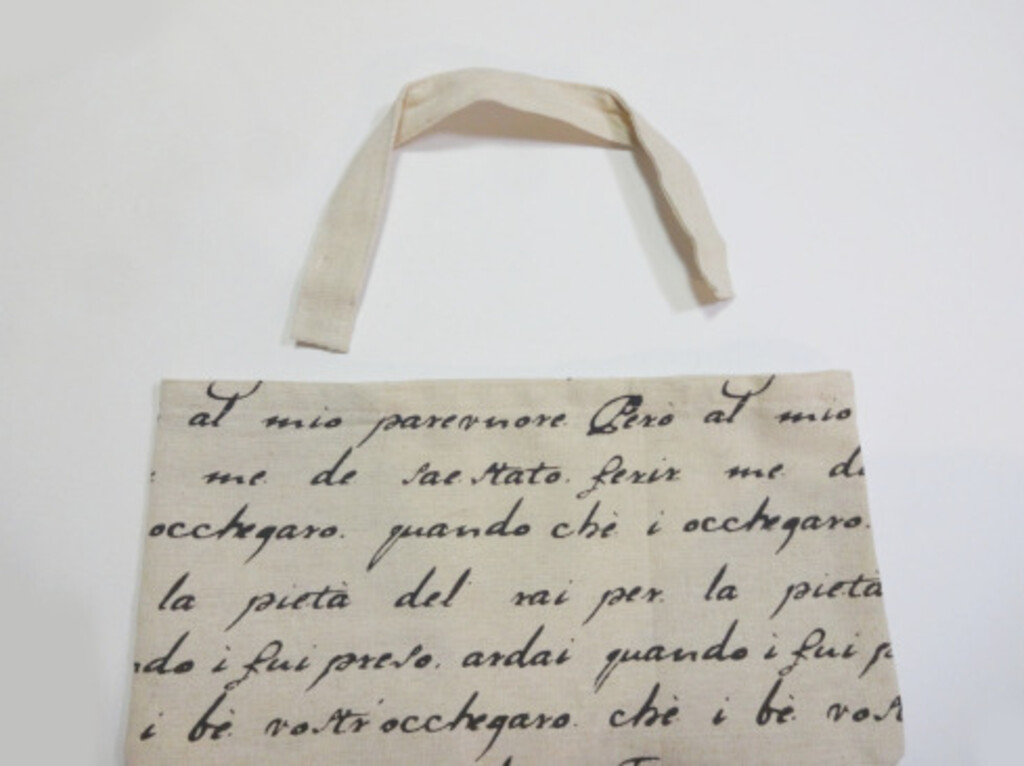 al mio parevuore. Però al mio
me de sae stato. ferir me d
occhegaro. quando chè i occhegaro.
la pietà del rai per la pietà
ndo i fui preso. ardai quando i fui p
i bè vostr'occhegaro. chè i bè vost